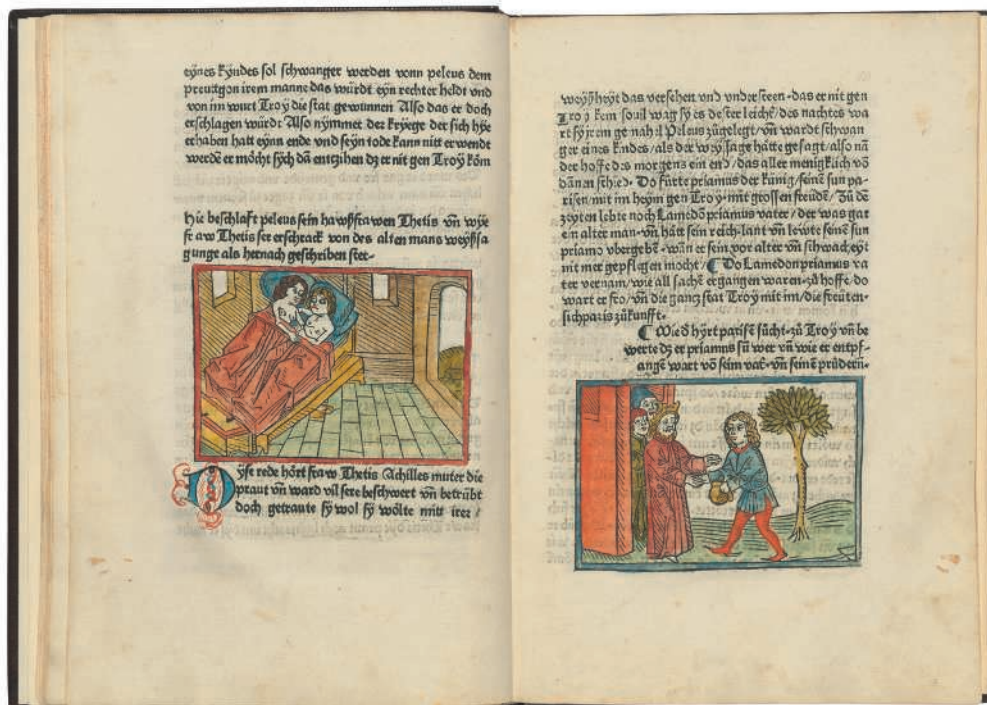 eynes kyndes sol schwanger werden vonn peleus dem
preutgon irem manne das würdt eyn rechter heldt vnd
von im wurt Troy die stat gewunnen Also das er doch
erschlagen würdt Also nymmet der kryege der sich hye
erhaben hatt eynn ende vnd seyn tode kann nitt erwendt
werdē er möcht sych dā entzihen dz er nit gen Troy köm
Hie beschlaft peleus sein hawßfrawen Thetis vn̄ wye
fraw Thetis ser erschrack von des alten mans weyssa
gunge als hernach geschriben stet·
Dyse rede hört fraw Thetis Achilles muter die
praut vn̄ ward vil sere beschwert vn̄ betrübt
doch getraute sy wol sy wölte mitt irer /
weyßheyt das versehen vnd vndersteen·das er nit gen
Troy kem souil wag sy es dester leichē· des nachtes wa
rt sy irem gemahil Peleus zůgelegt/vn̄ wardt schwan
ger eines kindes/als der weyssage hatte gesagt/also nā
der hoffe des morgens ein end/das aller menigklich vō
dānen schied· Do fürte priamus der künig/seinē sun pa-
risen/mit im heym gen Troy·mit grossen freudē/ Zů dē
zeyten lebte noch Lamedon priamus vater/der was gar
ein alter man·vn̄ hatt sein reich·lant vn̄ lewte seinē sun
priamo vbergebē·wan er sein vor alter vn̄ schwacheyt
nit mer gepflegen mocht/ ⸿ Do Lamedon priamus va
ter vernam/wie all sachē ergangen waren·zů hoffe/do
wart er fro/vn̄ die gantz stat Troy mit im/die freüten·
sich paris zůkunfft·
⸿ Wie d hyrt parisē sůcht·zů Troy vn̄ be
werte dz er priamus sū wer vn̄ wie er entpf-
angē wart vō seim vať·vn̄ seinē prüdern̄·